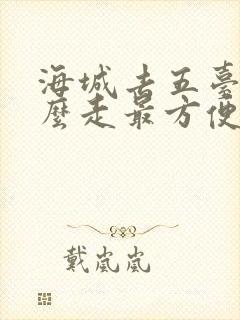 海城去五臺
麼走最方便
戴嵐嵐